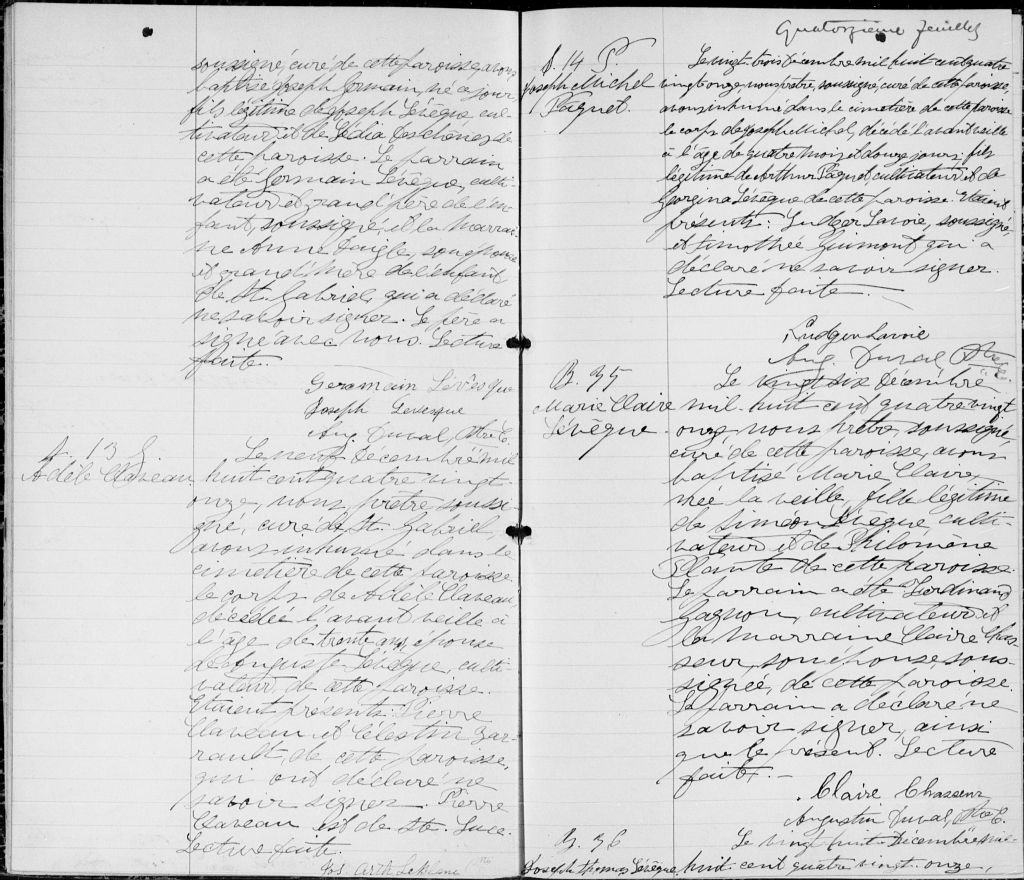 soussigné, curé de cette paroisse, avons
baptisé Joseph Germain, né ce jour
fils légitime de Joseph Lévêque, cul-
tivateur, et de Lédia Deschenes de
cette paroisse. Le parrain
a été Germain Lévêque, culti-
vateur et grand'père de l'en-
fant, soussigné, et la marrai-
ne Anne Daigle, son épouse
et grand'mère de l'enfant
de St. Gabriel, qui a déclaré
ne savoir signer. Le père a
signé avec nous. Lecture
faite.
Geremain Lévesque
Joseph Levesque
Aug. Duval, Ptre C.
S. 13
Adèle Claveau
Le neuf Décembre mil
huit cent quatre vingt
onze, nous, prêtre, soussi-
gné, curé de St. Gabriel
avons inhumé dans le
cimetière de cette paroisse
le corps de Adèle Claveau,
décédée l'avant veille à
l'âge de trente ans, épouse
de Auguste Lévêque, culti-
vateur, de cette paroisse.
Etaient présents: Pierre
Claveau et Célestin Gar-
rault, de cette paroisse,
qui ont déclaré ne
savoir signer. Pierre
Claveau est de Ste. Luce.
Lecture faite.
Jos Arth Leblanc Ptre
Quatorzième feuillet
S. 14 P.
Joseph Michel
Paquet
Le vingt trois Décembre mil huit cent quatre
vingt onze, nous prêtre, soussigné, curé de cette paroisse,
avons inhumé dans le cimetière de cette paroisse
le corps de Joseph Michel, décédé l'avant veille
à l'âge de quatre mois et douze jours, fils
légitime de Arthur Paquet, cultivateur et de
Georgina Lévêque de cette paroisse. Etaient
présents: Ludger Lavoie, soussigné,
et Timothée Guimont qui a
déclaré ne savoir signer.
Lecture faite.
Ludger Lavoie
Aug. Duval, Ptre C.
B. 35
Marie Claire
Lévêque
Le vingt six Décembre
mil huit cent quatre vingt
onze, nous prêtre, soussigné,
curé de cette paroisse, avons
baptisé Marie Claire,
née la veille, fille légitime
de Siméon Lévêque, culti-
vateur et de Philomène
Plante de cette paroisse.
Le parrain a été Ferdinand
Gagnon, cultivateur, et
la marraine Claire Chas-
seur, son épouse sous-
signée, de cette paroisse.
Le parrain a déclaré ne
savoir signer, ainsi
que le présent. Lecture
faite.
Claire Chasseur
Augustin Duval, Ptre C.
B. 36
Joseph Thomas Lévêque
Le vingt huit Décembre mil
huit cent quatre vingt onze,